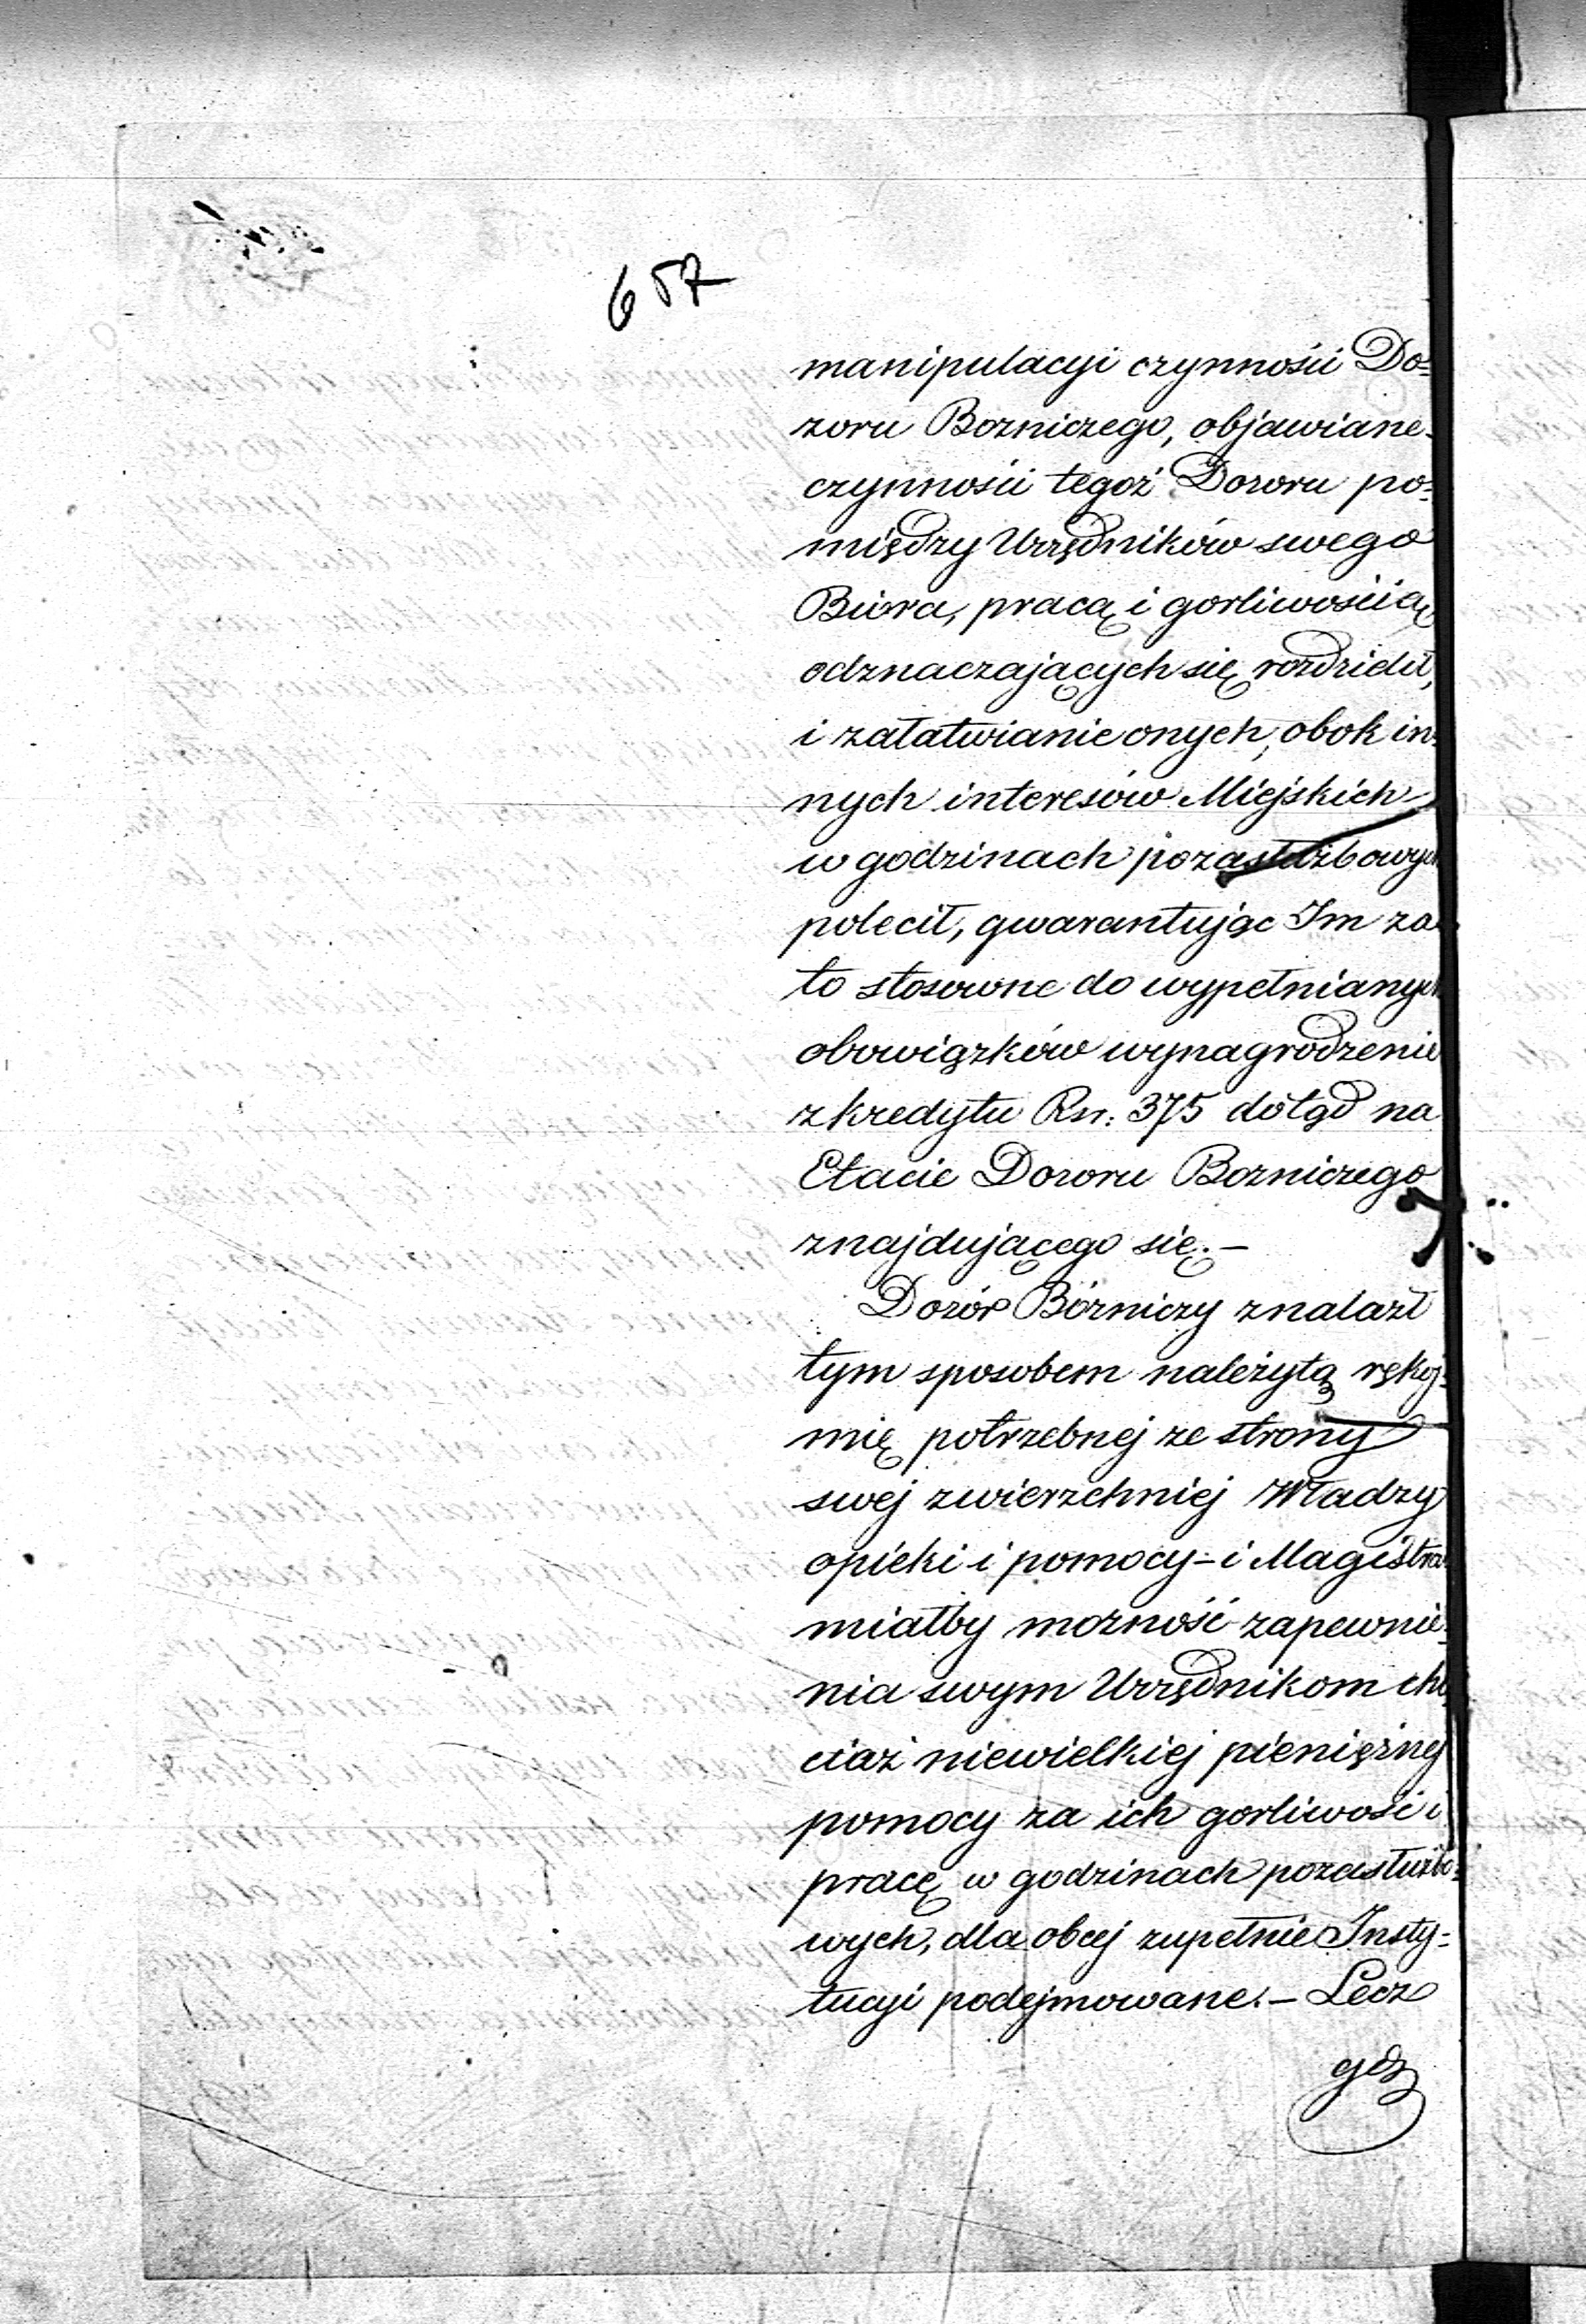 657
manipulacyi czynności Do=
zoru Bozniczego, objawiane
czynności tegoż Dozoru po=
między Urzędników swego
Bióra, pracą i gorliwością
odznaczających się rozdzielił,
i załatwianie onych, obok in=
nych interesów Miejskich
w godzinach pozasłużbowych
polecił, gwarantując Im za
to stosowne do wypełnianych
obowiązków wynagrodzenie
z kredytu Rsr. 375 dotąd na
Etacie Dozoru Bozniczego
znajdującego się. –
Dozór Bózniczy znalazł
tym sposobem należytą rękoj=
mię potrzebnej ze strony
swej zwierzchniej Władzy
opieki i pomocy – i Magistrat
miałby możność zapewnie=
nia swym Urzędnikom cho
ciaż niewielkiej pieniężnej
pomocy za ich gorliwość i
pracę w godzinach pozasłużbo=
wych, dla obcej zupełnie Insty=
tucyi podejmowane. – Lecz
gdz